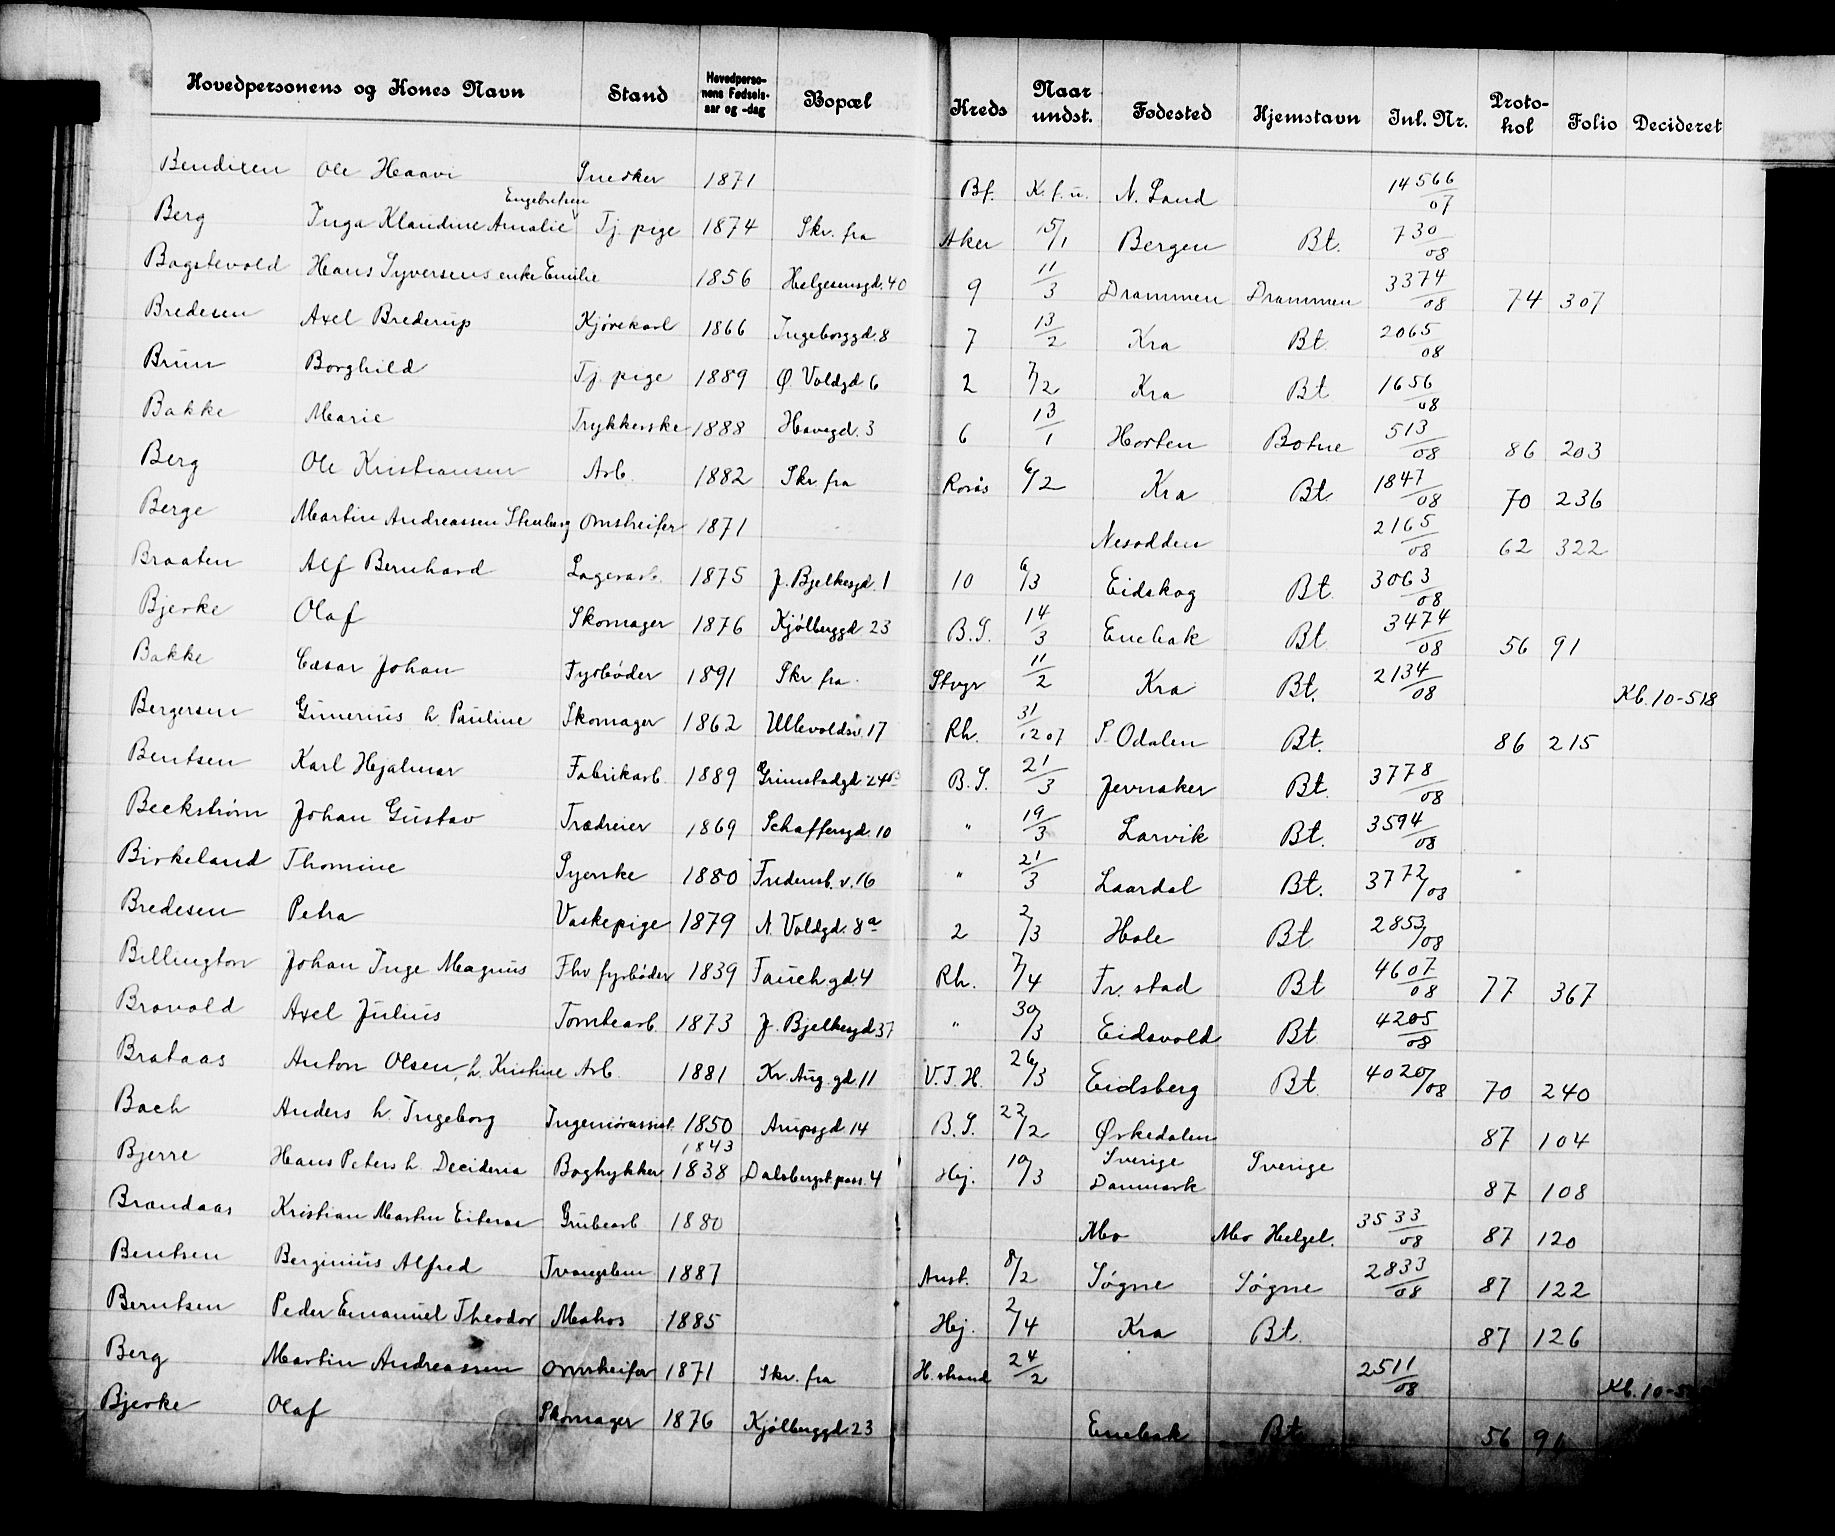 Hovedpersonens og Kones Navn Stand Hovedpersonens Fødselsaar og -dag Bopæl Kreds Naar undst. Fødested Hjemstavn Inl. Nr. Protokol Folio Decideret
Bendixen Ole Haavi Snedker 1871 Bf. K.f.u. N. Land 14566/07
Engebretsen
Berg Inga Klaudine Amalie Tj. pige 1874 Skr. fra Aker 15/1 Bergen Bt. 730/08
Bagstevold Hans Syversens enke Emilie 1856 Helgesensgd. 40 9 11/3 Drammen Drammen 3374/08 74 307
Bredesen Axel Brederup Kjørekarl 1866 Ingeborggd. 8 7 13/2 Kra Bt. 2065/08
Brun Borghild Tj. pige 1889 Ø. Voldgd 6 2 7/2 Kra Bt 1656/08
Bakke Marie Trykkerske 1888 Havegd. 3 6 13/1 Horten Botne 513/08 86 203
Berg Ole Kristiansen Arb. 1882 Skr fra Rorås 6/2 Kra Bt 1847/08 70 236
Berge Martin Andreassen Stenberg omstreifer 1871 Nesodden 2165/08 62 322
Braaten Alf Bernhard Lagerarb. 1875 J. Bjelkesgd. 1 10 6/3 Eidskog Bt. 3063/08
Bjerke Olaf Skomager 1876 Kjølberggd 23 B.S. 14/3 Enebak Bt. 3474/08 56 91
Bakke Cæsar Johan Fyrbøder 1891 Skr fra Stvgr 11/2 Kra Bt. 2134/08 Kb. 10-518
Bergersen Gunerius h Pauline Skomager 1862 Ullevoldsv. 17 Rh. 31/12 07 S. Odalen Bt. 86 215
Bentsen Karl Hjalmar Fabrikarb. 1889 Grimstadgd 24 B.S. 21/3 Jevnaker Bt. 3778/08
Beckstrøm Johan Gustav Trædreier 1869 Schaffersgd. 10 " 19/3 Larvik Bt. 3594/08
Birkeland Thomine Syerske 1880 Fredensb. v. 16 " 21/3 Laardal Bt. 3772/08
Bredesen Petra Vaskepige 1879 N. Voldgd. 8a 2 2/3 Hole Bt 2853/08
Billington Johan Inge Magnus Fhv fyrbøder 1839 Fauchgd. 4 Rh. 7/4 Fr. stad Bt 4607/08 77 367
Bravold Axel Julius Tomtearb. 1873 J. Bjelkesgd 37 " 30/3 Eidsvold Bt 4205/08
Brataas Anton Olsen, h. Kristine Arb. 1881 Kr. Aug. gd. 11 V.F.H. 26/3 Eidsberg Bt. 4020/08 70 240
Bach Anders h. Ingeborg Ingeniørassist. 1850 Arupsgd 14 B.S. 22/2 Ørkedalen 87 104
1843 Sverige Sverige
Bjerre Hans Peters h. Decideria Bogtrykker 1838 Dalsbergst. pass. 4 Hej. 10/3 Danmark 87 108
Brandaas Kristian Martin Grubearb 1880 Mo Mo Helgel. 3533/08 87 120
Bentsen Berginius Alfred Tvangslem 1887 Anst. 8/2 Søgne Søgne 2833/08 87 122
Berntsen Peder Emanuel Theodor Matros 1885 Hej. 2/4 Kra Bt. 87 126
Berg Martin Andreassen omstreifer 1871 Skr. fra H.strand 24/2 2511/08 Kb. 10-
Bjerke Olaf Skomager 1876 Kjølberggd. 23 Enebak Bt 56 91